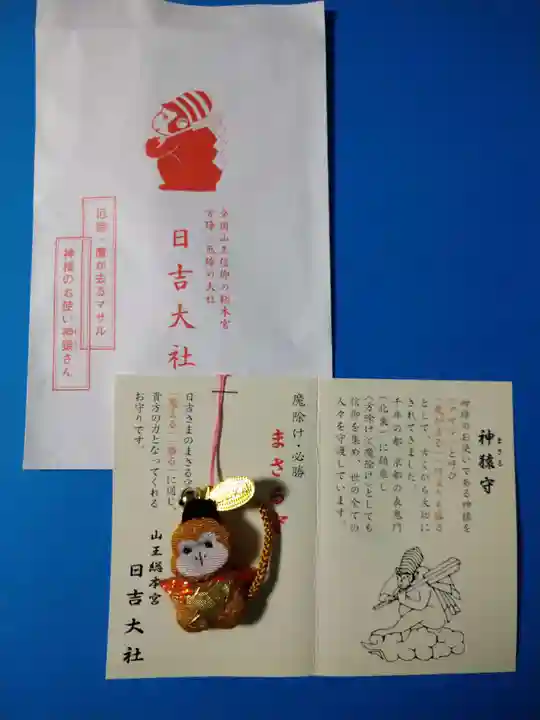 全国山王信仰の総本宮
方除・厄除の大社
日吉大社
厄除・魔が去るマサル
神様のお使い神猿さん
まさる
神猿守
神様のお使いである神様を
として、古くから大切に
されてきました。
千年の都 京都の表鬼門
(北東)に鎮座し
信仰を集め、世の全ての
人々を守護しています。
魔除け・必勝
日吉さまのまさる守
に通じ、
貴方の力となってくれる
お守りです。
山王総本宮
日吉大社